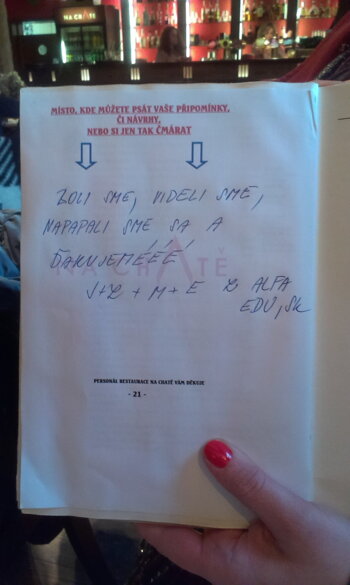 NA CHATĚ
MÍSTO, KDE MŮŽETE PSÁT VAŠE PŘIPOMÍNKY,
ČI NÁVRHY,
NEBO SI JEN TAK ČMÁRAT
BOLI SME, VIDELI SME,
NAPAPALI SME SA A
ĎAKUJEMÉÉÉ
NA CHATĚ
J+L + M + E Z ALFA
EDU, SK
PERSONÁL RESTAURACE NA CHATĚ VÁM DĚKUJE
- 21 -